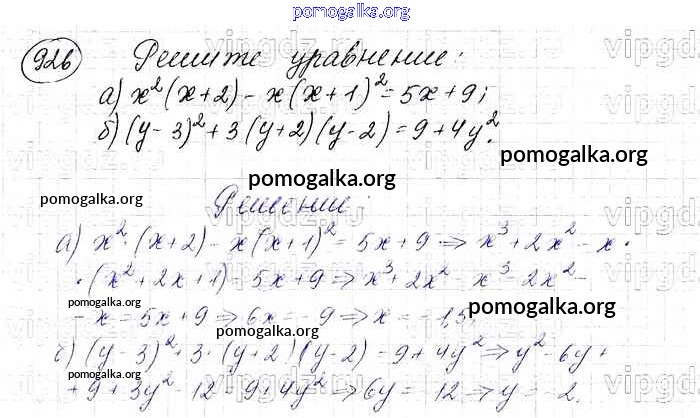 pomogalka.org
926 Решите уравнение:
а) x²(x+2) - x(x+1)² = 5x+9;
б) (y-3)² + 3(y+2)(y-2) = 9+4y².
pomogalka.org
pomogalka.org
Решение:
а) x²·(x+2) - x(x+1)² = 5x+9 => x³+2x² - x·
·(x²+2x+1) = 5x+9 => x³+2x² - x³ - 2x² -
pomogalka.org
- x = 5x+9 => 6x = -9 => x = -1,5.
pomogalka.org
pomogalka.org
б) (y-3)² + 3·(y+2)(y-2) = 9+4y² => y² - 6y +
pomogalka.org
+ 9 + 3y² - 12 = 9+4y² => 6y = -12 => y = -2.
pomogalka.org